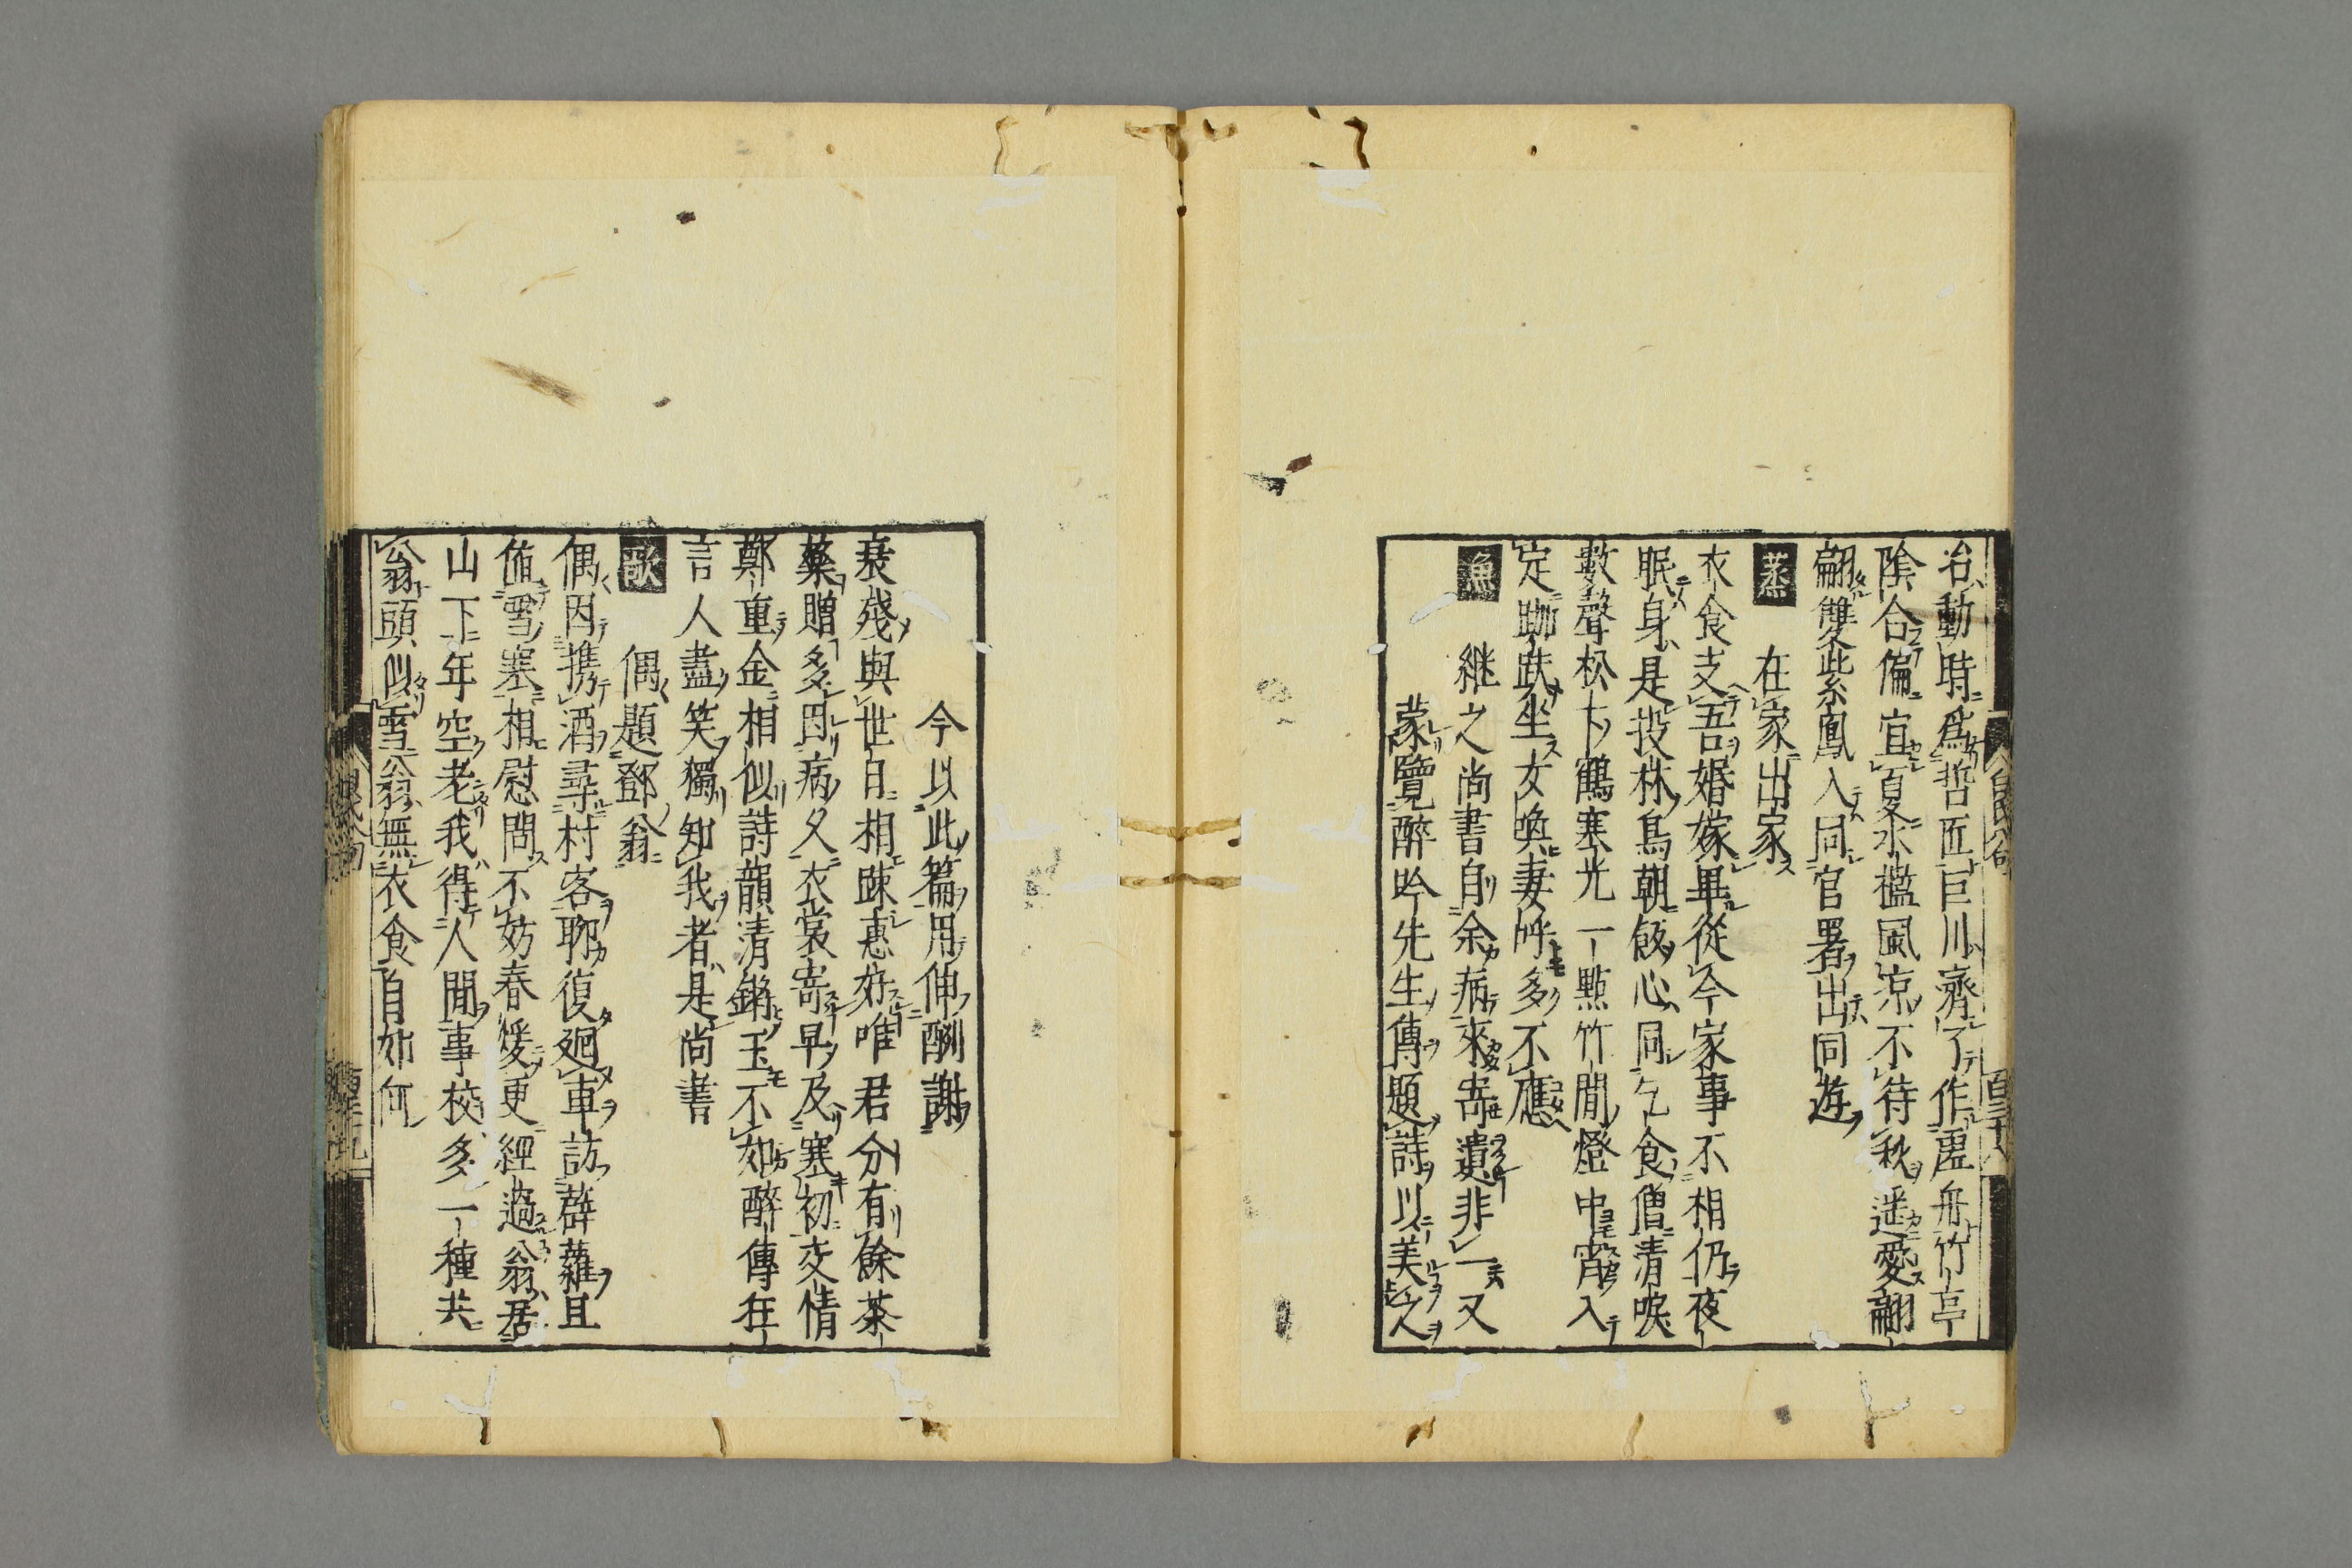 冶動時爲哲匠巨川濟了作虚舟竹亭
陰合偏宜夏水檻風凉不待秋遥愛翩
翩雙紫鳳入同官署出同遊
蒸　在家出家
衣食支吾婚嫁畢從今家事不相仍夜
眠身是投林鳥朝飯心同乞食僧清唳
數聲松下鶴寒光一點竹間燈中宵入
定跏趺坐女喚妻呼多不應
魚　継之尚書自余病來寄遺非一又
蒙覽醉吟先生傳題詩以美之
今以此篇用伸酬謝
衰殘與世日相踈惠好唯君分有餘茶
藥贈多因病久衣裳寄早及寒初交情
鄭重金相似詩韻清鏘玉不如醉傳狂
言人盡笑獨知我者是尚書
歌　偶題鄧翁
偶因携酒尋村客聊復廻車訪薜蘿且
値雪寒相慰問不妨春煖更經過翁居
山下年空老我得人間事校多一種共
翁頭似雪翁無衣食自如何